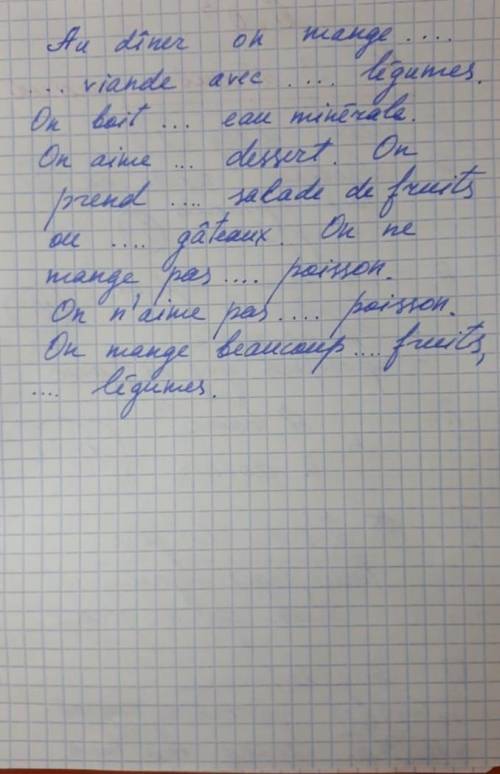 Au dîner on mange ....
... viande avec .... légumes.
On boit ... eau minérale.
On aime ... dessert. On
prend .... salade de fruits
ou .... gâteaux. On ne
mange pas .... poisson.
On n'aime pas .... poisson.
On mange beaucoup ... fruits,
.... légumes.